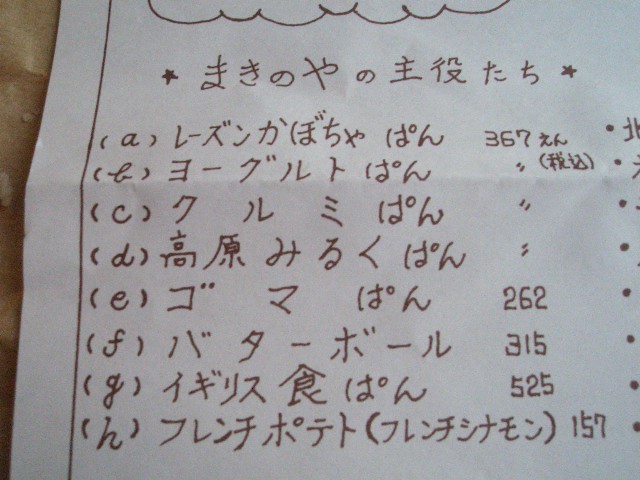 ★ まきのやの主役たち ★
(a) レーズンかぼちゃ ぱん 367えん
(b) ヨーグルト ぱん 〃 (税込)
(c) クルミ ぱん 〃
(d) 高原みるくぱん 〃
(e) ゴマ ぱん 262
(f) バターボール 315
(g) イギリス食ぱん 525
(h) フレンチポテト(フレンチシナモン) 157